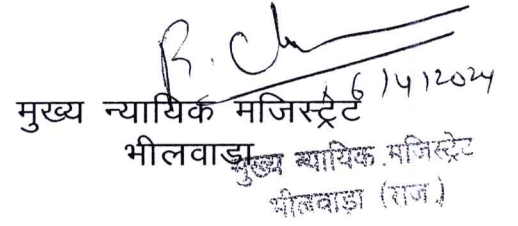 6/4/2024
मुख्य न्यायिक मजिस्ट्रेट
भीलवाड़ा
मुख्य न्यायिक मजिस्ट्रेट
भीलवाड़ा (राज.)